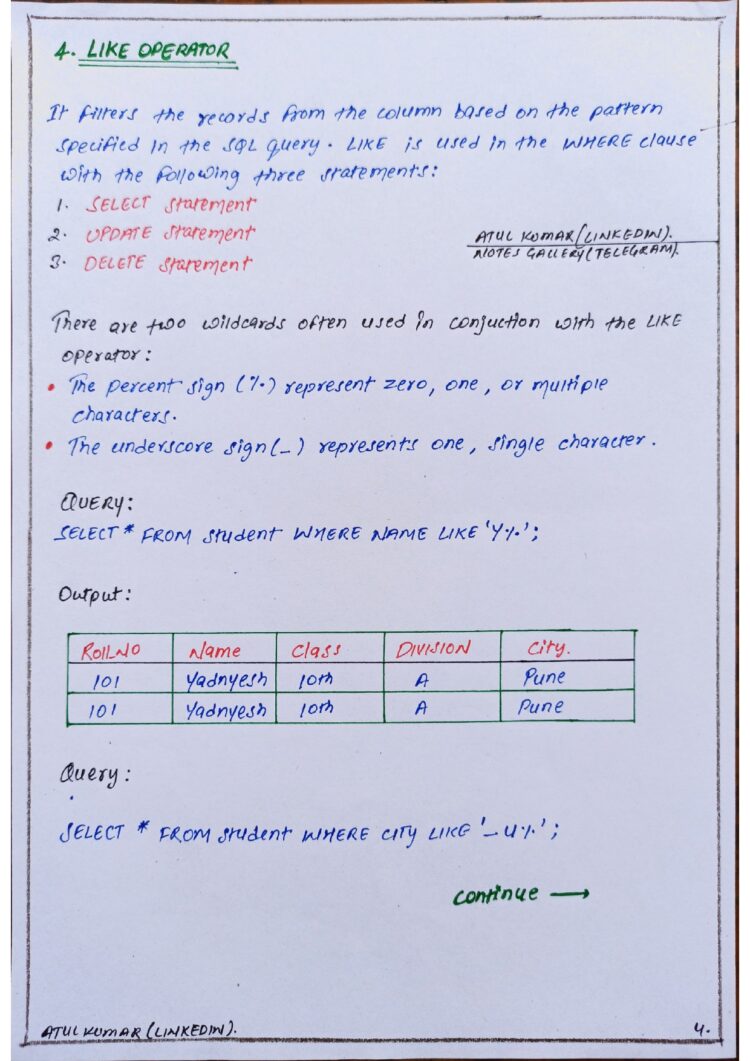 4. LIKE OPERATOR
It filters the records from the column based on the pattern
specified in the SQL query. LIKE is used in the WHERE clause
with the following three statements:
1. SELECT statement
2. UPDATE statement
3. DELETE statement
ATUL KUMAR (LINKEDIN).
NOTES GALLERY (TELEGRAM).
There are two wildcards often used in conjuction with the LIKE
operator:
• The percent sign (%) represent zero, one, or multiple
characters.
• The underscore sign (_) represents one, single character.
QUERY:
SELECT * FROM student WHERE NAME LIKE 'Y%';
Output:
Roll_NO Name Class DIVISION City.
101 Yadnyesh 10th A Pune
101 Yadnyesh 10th A Pune
Query:
SELECT * FROM student WHERE CITY LIKE '_u%';
continue →
ATUL KUMAR (LINKEDIN).
4.